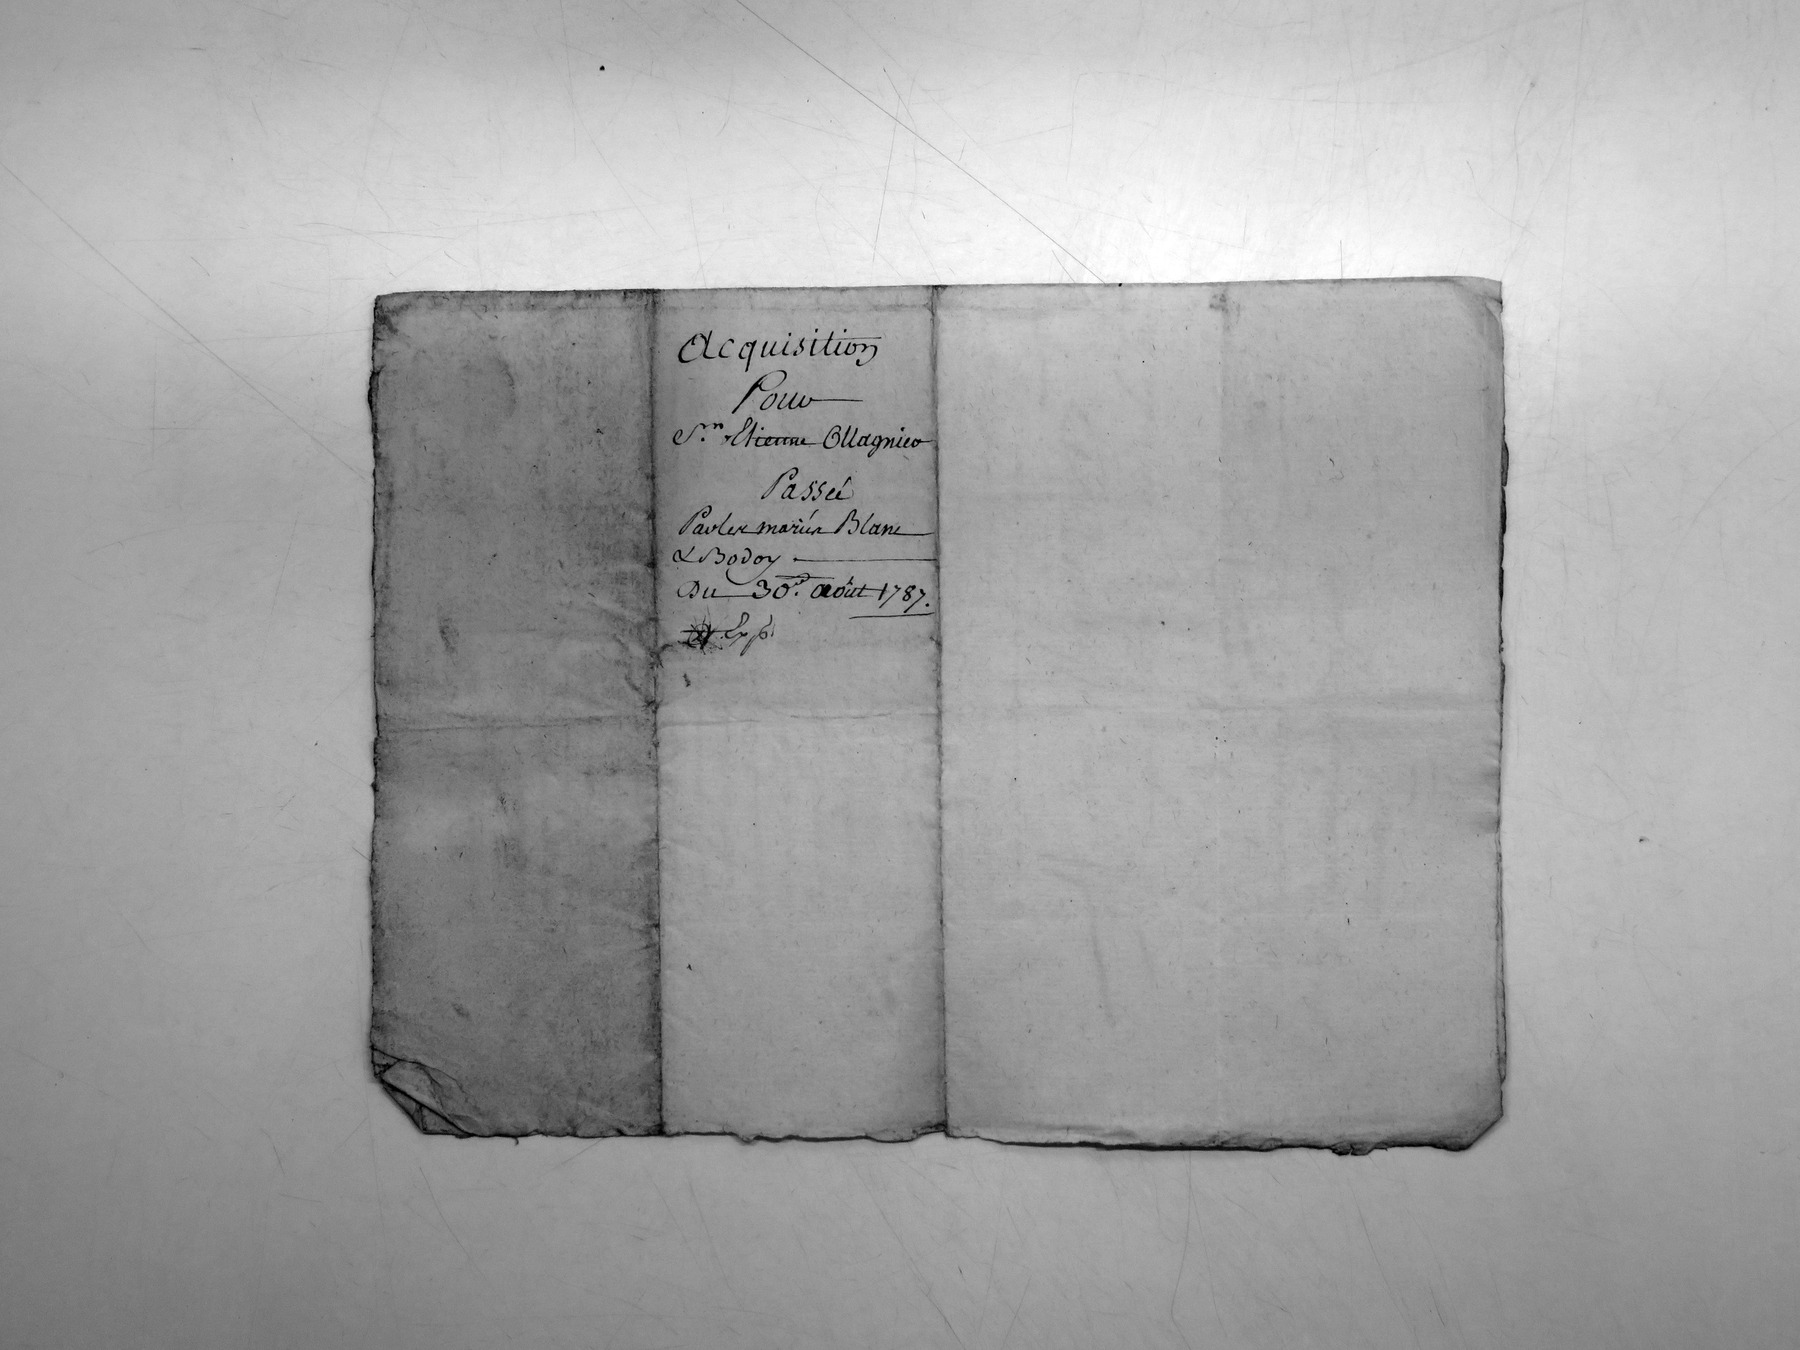 Acquisition
Pour
Sr. Etienne Ollagnier
Passée
Par les mariés Blanc
& Bodoy
Du 30e. août 1787.